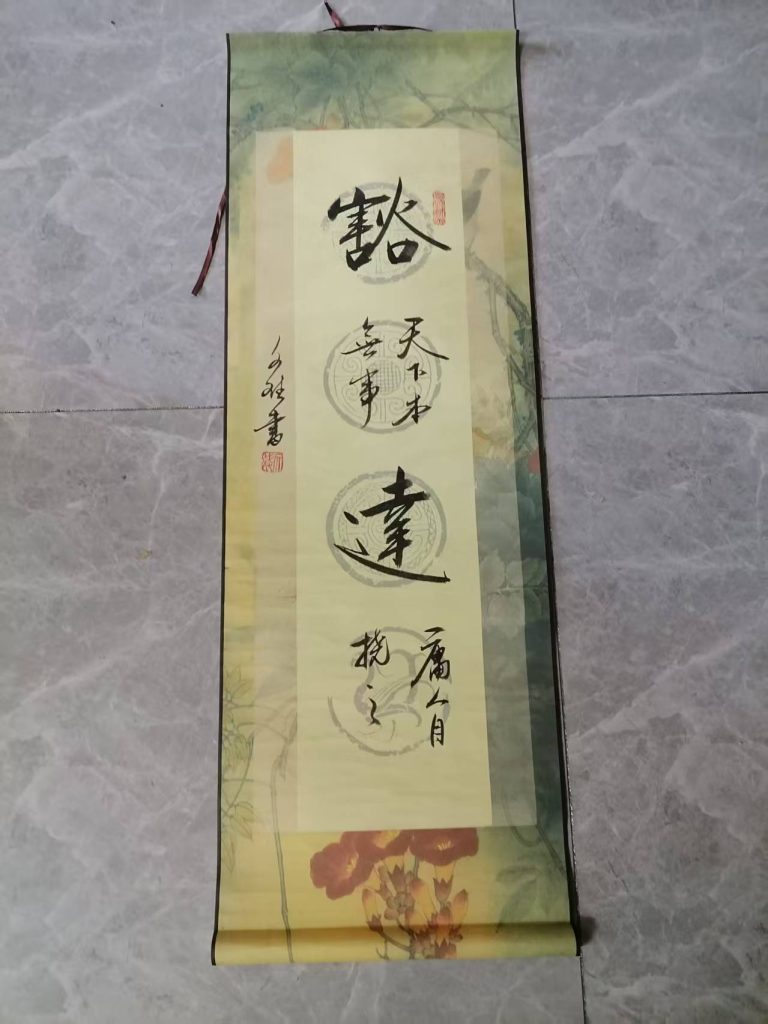 豁
天下本
無事
達
庸人自
挠之
書